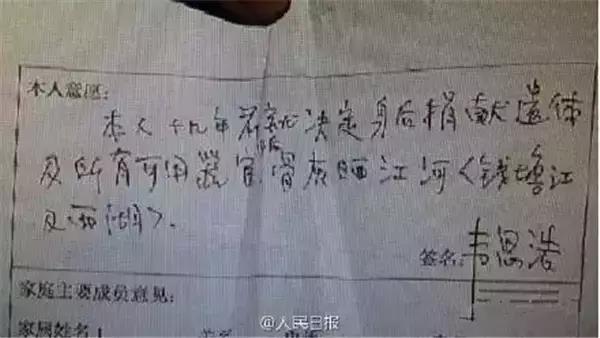 本人意愿:
本人十九年前就决定身后捐献遗体
及所有可用器官,骨灰晒江河<钱塘江
及西湖>.
签名:韦思浩
家庭主要成员意见:
家属姓名
@人民日报